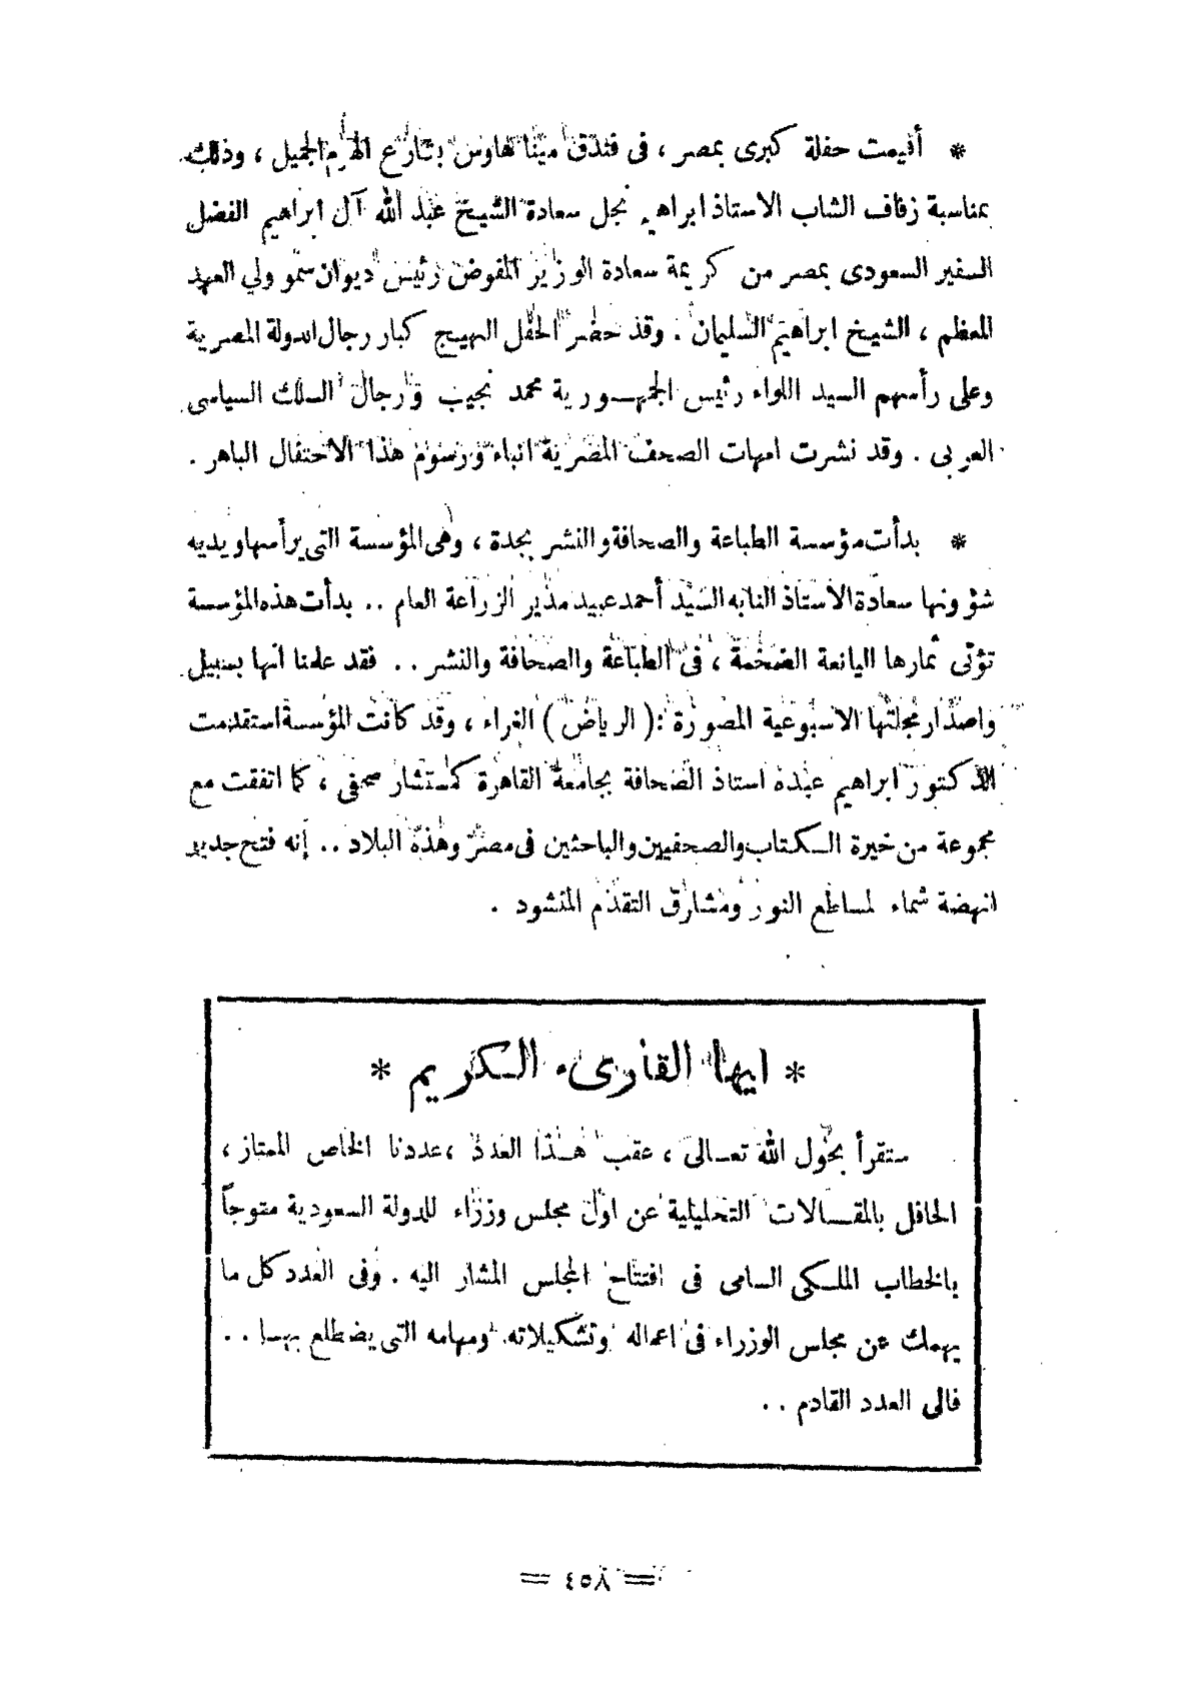 * أقيمت حفلة كبرى بمصر ، فى فندق مينا هاوس بشارع الهرم الجميل ، وذلك
بمناسبة زفاف الشاب الاستاذ ابراهيم نجل سعادة الشيخ عبد الله آل ابراهيم الفضل
السفير السعودى بمصر من كريمة سعادة الوزير المفوض رئيس ديوان سمو ولي العهد
المعظم ، الشيخ ابراهيم السليمان . وقد حضر الحفل البهيج كبار رجال الدولة المصرية
وعلى رأسهم السيد اللواء رئيس الجمهورية محمد نجيب ورجال السلك السياسى
العربى . وقد نشرت امهات الصحف المصرية انباء ورسوم هذا الاحتفال الباهر .
* بدأت مؤسسة الطباعة والصحافة والنشر بجدة ، وهى المؤسسة التى يرأسها ويديه
شؤونها سعادة الاستاذ النابه السيد أحمد عبيد مدير الزراعة العام .. بدأت هذه المؤسسة
تؤتى ثمارها اليانعة الضخمة ، فى الطباعة والصحافة والنشر .. فقد علمنا انها بسبيل
واصدار مجلتها الاسبوعية المصورة : ( الرياض ) الغراء ، وقد كانت المؤسسة استقدمت
الدكتور ابراهيم عبده استاذ الصحافة بجامعة القاهرة كمستشار صحفى ، كما اتفقت مع
مجموعة من خيرة الكتاب والصحفيين والباحثين فى مصر وهذه البلاد .. إنه فتح جديد
لنهضة شماء لمساطع النور ومشارق التقدم المنشود .
* ايها القارىء الكريم *
ستقرأ بحول الله تعالى ، عقب هذا العدد ، عددنا الخاص الممتاز ،
الحافل بالمقالات التحليلية عن اول مجلس وزراء للدولة السعودية متوجاً
بالخطاب الملكى السامى فى افتتاح المجلس المشار اليه . وفى العدد كل ما
يهمك عن مجلس الوزراء فى اعماله وتشكيلاته ومهامه التى يضطلع بها ..
فالى العدد القادم ..
= ٤٥٨ =